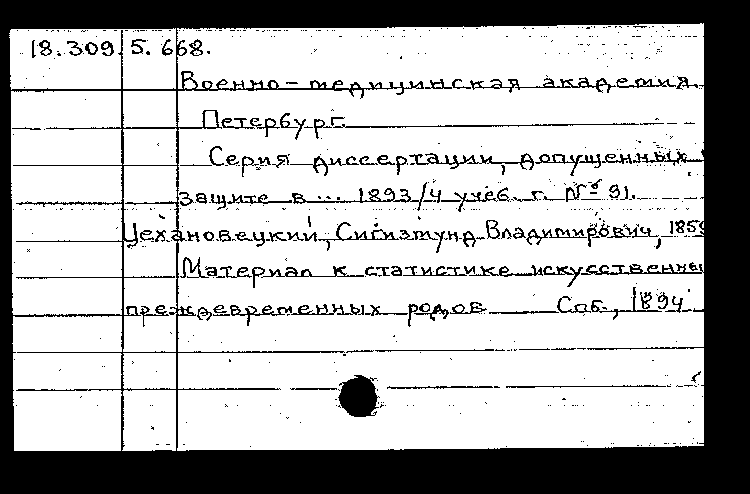 18.309.5.668.
Военно-медицинская академия.
Петербург.
Серия диссертации, допущенных
защите в ... 1893/4 учеб. г. № 91.
Цехановецкий, Сигизмунд Владимирович, 1859
Материал к статистике искусственны
преждевременных родов Спб., 1894